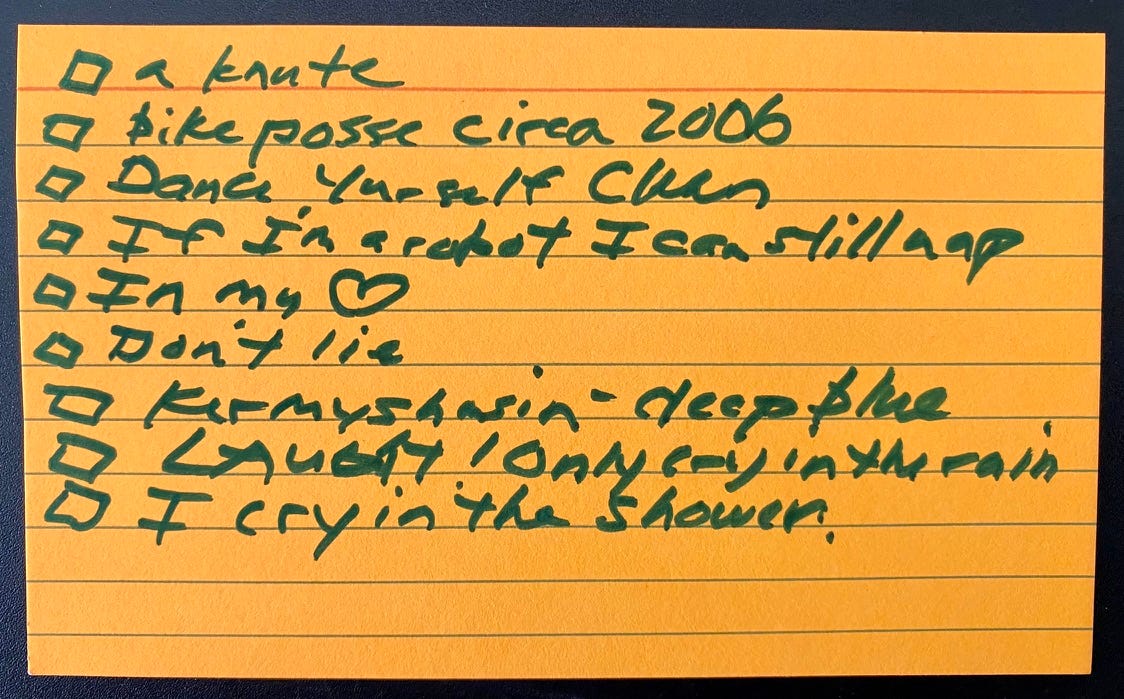 a knute
Bike posse circa 2006
Dance Yurself Clean
If I'm a robot I can still nap
In my ♡
Don't lie
- deep blue
LAUGHT / Only cry in the rain
I cry in the shower.